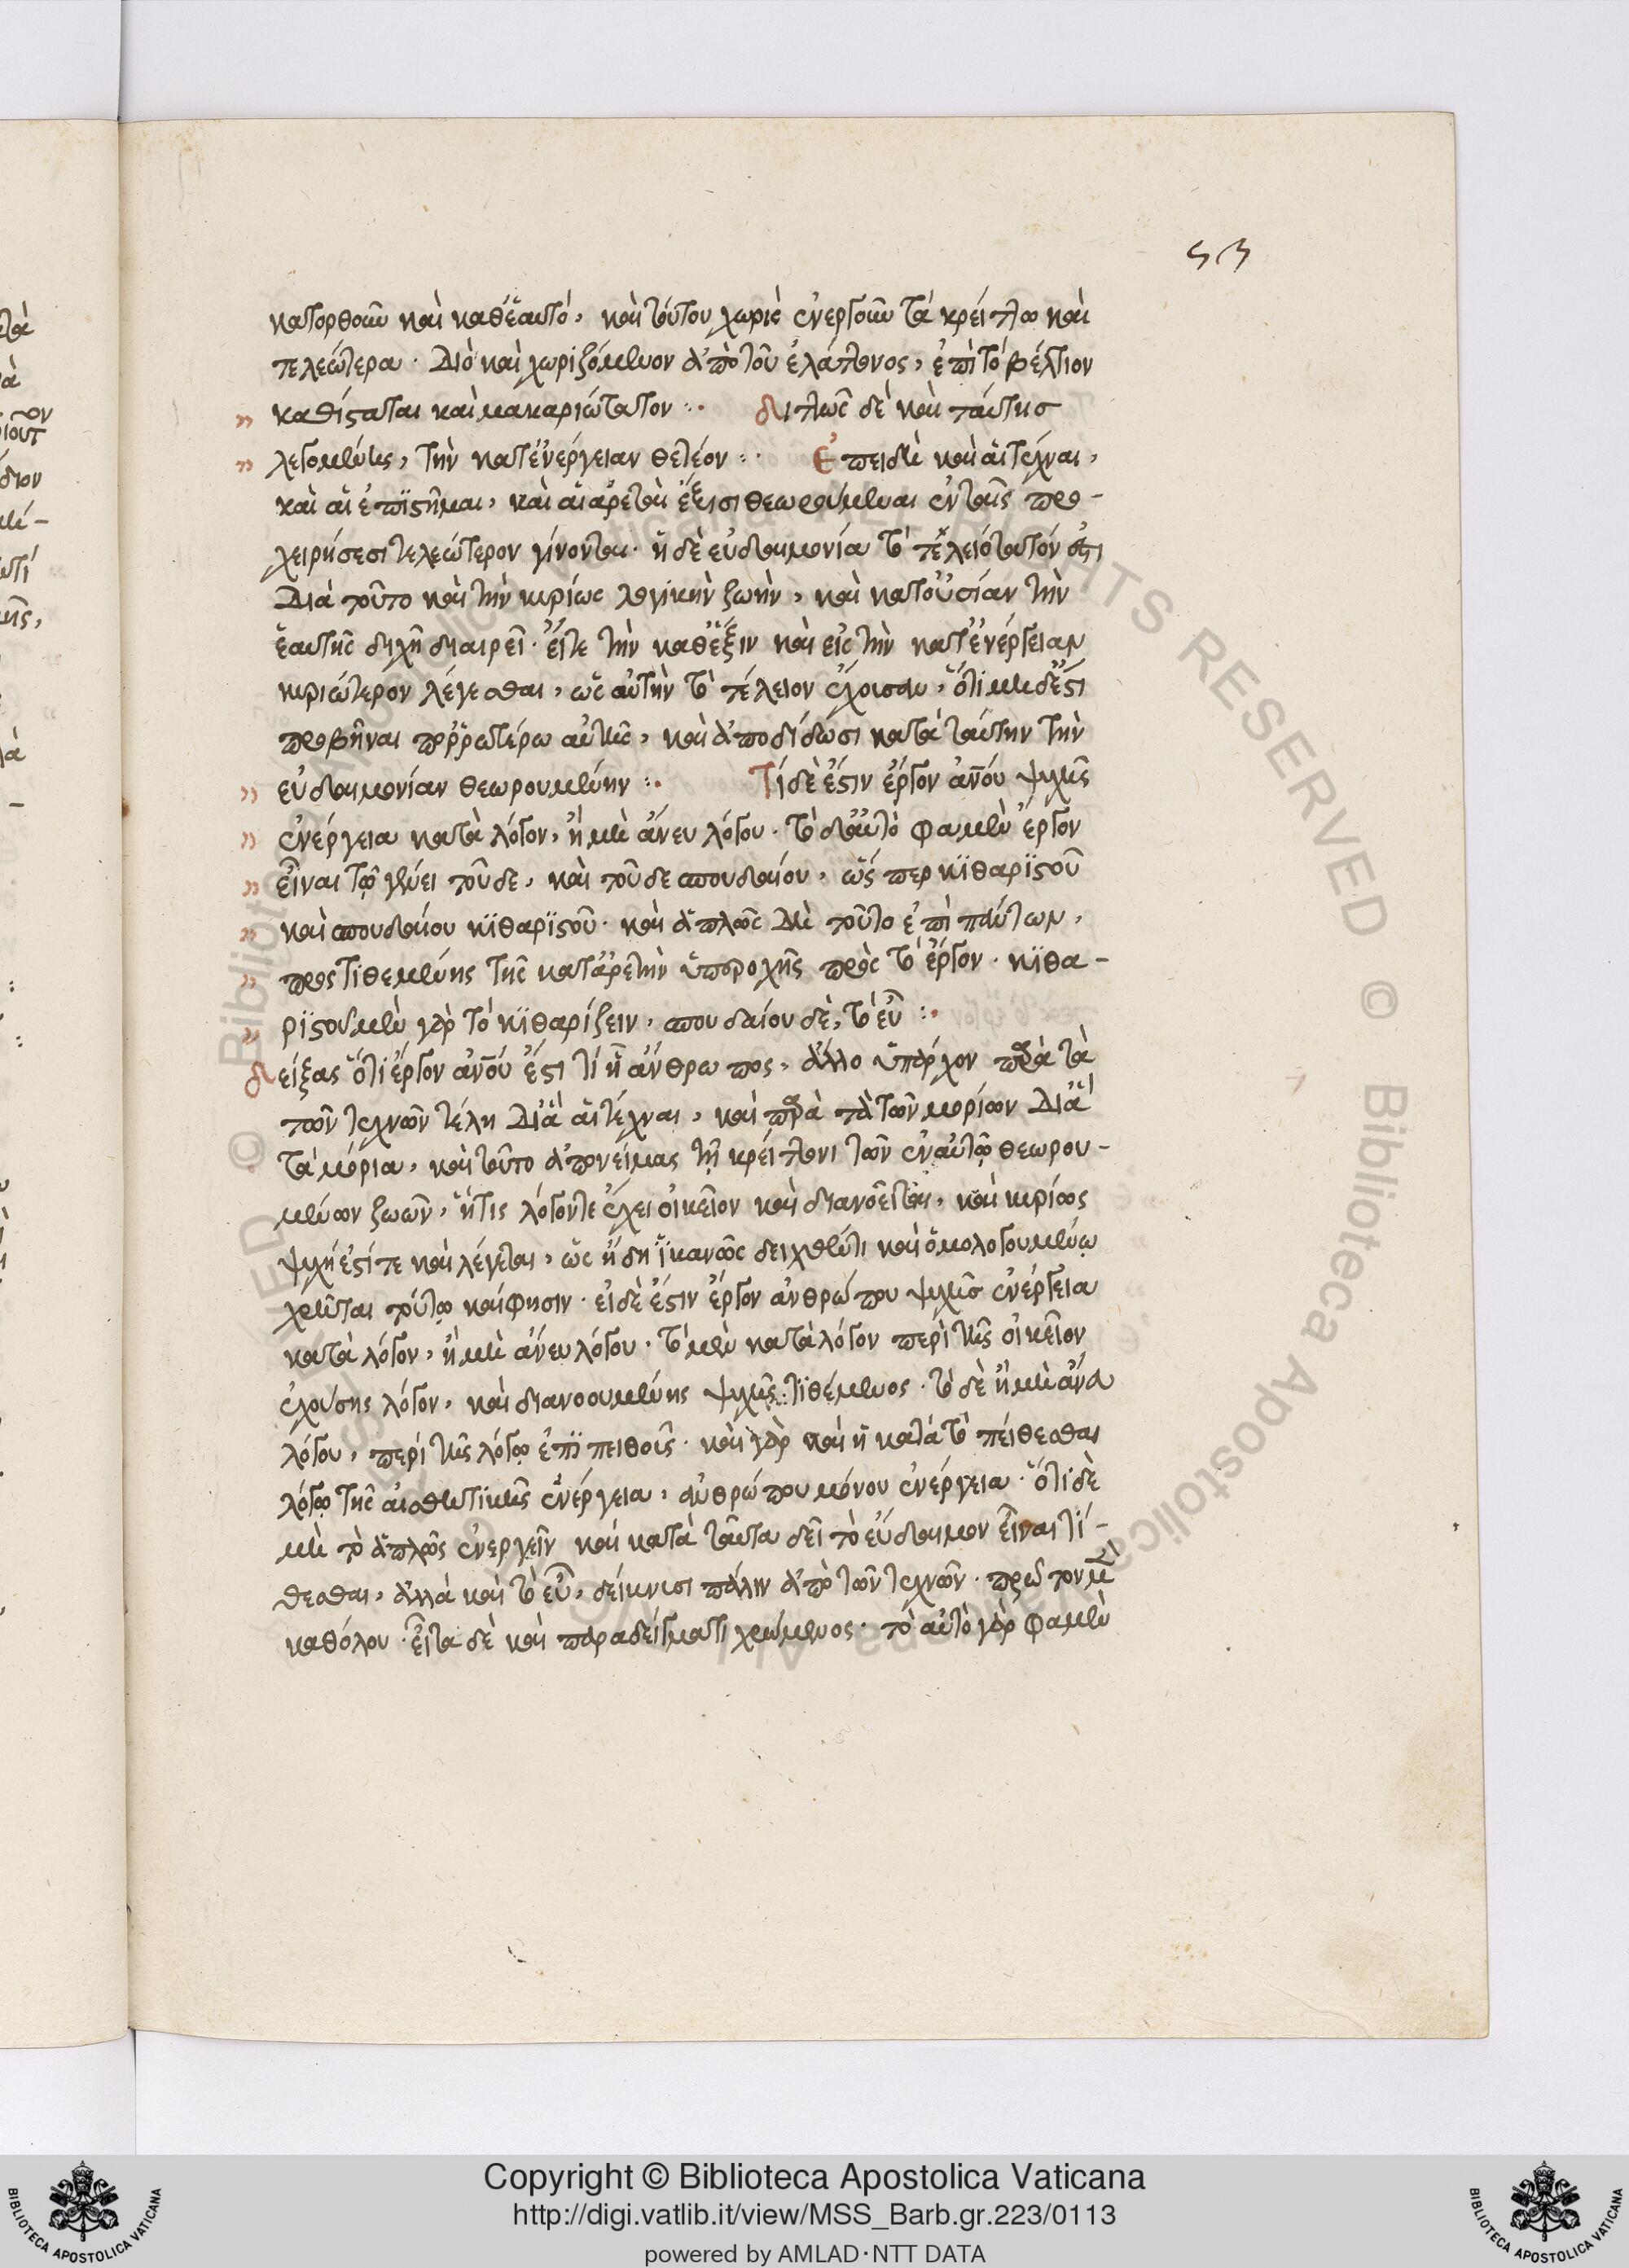 53
κατορθοῦν καὶ καθ' ἑαυτὸ, καὶ τούτου χωρὶς ἐνεργοῦν τὰ κρείττω καὶ
τελεώτερα. Διὸ καὶ χωριζόμενον ἀπὸ τοῦ ἐλάττονος, ἐπὶ τὸ βέλτιον
καθίσταται καὶ μακαριώτατον :. διττῶς δὲ καὶ ταύτης
λεγομένης, τὴν κατ' ἐνέργειαν θετέον :. Ἐπειδὴ καὶ αἱ τέχναι,
καὶ αἱ ἐπιστῆμαι, καὶ αἱ ἀρεταὶ ἕξεσι θεωρούμεναι ἐν ταῖς προ-
χειρήσεσι τελεώτερον γίνονται. ἡ δὲ εὐδαιμονία τὸ τελειότατόν ἐστι
Διὰ τοῦτο καὶ τὴν κυρίως λογικὴν ζωὴν, καὶ κατ' οὐσίαν τὴν
ἑαυτῆς διχῇ διαιρεῖ. εἴς τε τὴν καθ' ἕξιν καὶ εἰς τὴν κατ' ἐνέργειαν
κυριώτερον λέγεσθαι, ὡς αὐτὴν τὸ τέλειον ἔχουσαν, ὅτι μηδ' ἔστι
προβῆναι πορρωτέρω αὐτῆς, καὶ ἀποδίδωσι κατὰ ταύτην τὴν
εὐδαιμονίαν θεωρουμένην :. Τί δέ ἐστιν ἔργον ἀνου ψυχῆς
ἐνέργεια κατὰ λόγον, ἢ μὴ ἄνευ λόγου. τὸ δ' αὐτό φαμεν ἔργον
εἶναι τῷ γένει τοῦδε, καὶ τοῦδε σπουδαίου, ὥσπερ κιθαριστοῦ
καὶ σπουδαίου κιθαριστοῦ. καὶ ἁπλῶς δὴ τοῦτο ἐπὶ πάντων,
προστιθεμένης τῆς κατ' ἀρετὴν ὑπεροχῆς πρὸς τὸ ἔργον. κιθα-
ριστοῦ μὲν γὰρ τὸ κιθαρίζειν, σπουδαίου δὲ, τὸ εὖ :.
δείξας ὅτι ἔργον ἀνου ἐστί τι ᾗ ἄνθρωπος, ἄλλο ὑπάρχον παρὰ τὰ
τῶν τεχνῶν τέλη Δι' ἃ αἱ τέχναι, καὶ παρὰ τὰ τῶν μορίων Δι' ἃ
τὰ μόρια, καὶ τοῦτο ἀπονείμας τῇ κρείττονι τῶν ἐν αὐτῷ θεωρου-
μένων ζωῶν, ἥτις λόγον τε ἔχει οἰκεῖον καὶ διανοεῖται, καὶ κυρίως
ψυχή ἐστί τε καὶ λέγεται, ὡς ἤδη ἱκανῶς δειχθέντι καὶ ὁμολογουμένῳ
χρῆται τούτῳ καί φησιν. εἰ δέ ἐστιν ἔργον ἀνθρώπου ψυχῆς ἐνέργεια
κατὰ λόγον, ἢ μὴ ἄνευ λόγου. τὸ μὲν κατὰ λόγον περὶ τῆς οἰκεῖον
ἐχούσης λόγον, καὶ διανοουμένης ψυχῆς τιθέμενος. τὸ δὲ ἢ μὴ ἄνευ
λόγου, περὶ τῆς λόγῳ ἐπιπειθοῦς. καὶ γὰρ καὶ ἡ κατὰ τὸ πείθεσθαι
λόγῳ τῆς αἰσθητικῆς ἐνέργεια, ἀνθρώπου μόνου ἐνέργεια. ὅτι δὲ
μὴ τὸ ἁπλῶς ἐνεργεῖν καὶ κατὰ ταῦτα δεῖ τὸ εὔδαιμον εἶναι τί-
θεσθαι, ἀλλὰ καὶ τὸ εὖ, δείκνυσι πάλιν ἀπὸ τῶν τεχνῶν. πρῶτον μὲν
καθόλου. εἶτα δὲ καὶ παραδείγματι χρώμενος. τὸ αὐτὸ γὰρ φαμεν
© Biblioteca Apostolica Vaticana ALL RIGHTS RESERVED
Copyright © Biblioteca Apostolica Vaticana
http://digi.vatlib.it/view/MSS_Barb.gr.223/0113
powered by AMLAD·NTT DATA
BIBLIOTECA APOSTOLICA VATICANA
BIBLIOTECA APOSTOLICA VATICANA